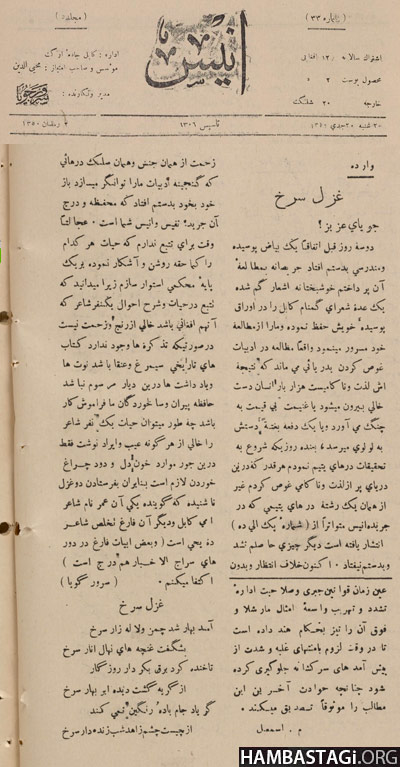 (شماره ۳۳)
انیس
(مجلد: )
اشتراك سالانه ۱۲ افغانی
محصول پوست ۲ »
خارجه ۲۰ شلنگ
اداره: کابل جاده ارگ
مؤسس و صاحب امتیاز: محی الدین
مدیر و نگارنده: سرور جویا
تاسیس ۱۳۰۶
رمضان ۱۳۵۰
وارده
غزل سرخ
جویای عزیز؟
دوسه روز قبل اتفاقاً یك بیاض پوسیده
ومندرسی بدستم افتاد حریصانه بمطالعهٔ
آن پرداختم خوشبختانه اشعار گم شده
یك عدهٔ شعرای گمنام کابل را در اوراق
پوسیدهٔ خویش حفظ نموده ومارا ازمطالعه
خود مسرور مینمود واقعاً مطالعه در ادبیات
غوص کردن بدریائی می ماند که نتیجهٔ
اش لذت وناکامیست هزار بار انسان دست
خالی بیرون میشود یاغنیمت بی قیمت به
چنگ می آورد ویا یك دفعه بغتتهً دستش
به لولوی میرسد، بنده روزیکه شروع به
تحقیقات درهای یتیم نمودم هر قدر که درین
دریای پر ازلذت وناکامی غوص کردم غیر
از همان یك رشتهٔ درهای یتیمی که در
جریده انیس متواتراً از (شماره یك الی ده)
انتشار یافته است دیگر چیزی حاصلم نشد
وبدستم نیفتاد. اکنون خلاف انتظار وبدون
زحمت از همان جنس وهمان سلك درهائی
که گنجینه ادبیات مارا توانگر میسازد باز
خود بخود بدستم افتاد که محفظه و درج
آن جریدهٔ نفیس وانیس شما است. عجالتاً
وقت برای تتبع ندارم که حیات هر کدام
را کما حقه روشن و آشکار نموده بر یك
پایهٔ محکمی استوار سازم زیرا میدانید که
تتبع درحیات وشرح احوال یکنفر شاعر که
آنهم افغانی باشد خالی ازرنج وزحمت نیست
درصورتیکه تذکره ها وجود ندارد کتاب
های تاریخی سیمرغ وعنقا باشد نوت ها
ویاد داشت ها درین دیار مرسوم نباشد
حافظه پیران وسالخوردگان ما فراموش کار
باشد چه طور میتوان حیات یك نفر شاعر
را خالی از هر گونه عیب وایراد نوشت فقط
درین جور موارد خون دل و دود چراغ
خوردن لازم است بنابران بفرستادن دوغزل
ناشنیده که گوینده یکی آن عمر نام شاعر
امی کابل ودیگر آن فارغ تخلص شاعر
ده یحیی است (وبعض ابیات فارغ در دور
های سراج الاخبار هم درج است)
اکتفا میکنم. (سرور گویا)
غزل سرخ
آمد بهار شد چمن ولاله زار سرخ
بشگفت غنچه های نهال انار سرخ
تاخنده کرد برق بکردار روزگار
از گریه گشت دیده ابر بهار سرخ
گر یاد جام بادهٔ رنگین نمی کند
از چیست چشم زاهد شب زنده دار سرخ
عین زمان قوانین جبری وصلاحیت اداره
تشدد و تهریب واسعهٔ امثال مارشلا و
فوق آن را نیز بحکام هند داده است
تا در وقت لزوم بامنتهای غلبه و شدت از
پیش آمد های سرکشانه جلوگیری کرده
شود چنانچه حوادث آخرین این
مطالب را موثوقاً تصدیق میکند.
م. اسمعیل
HAMBASTAGI.ORG